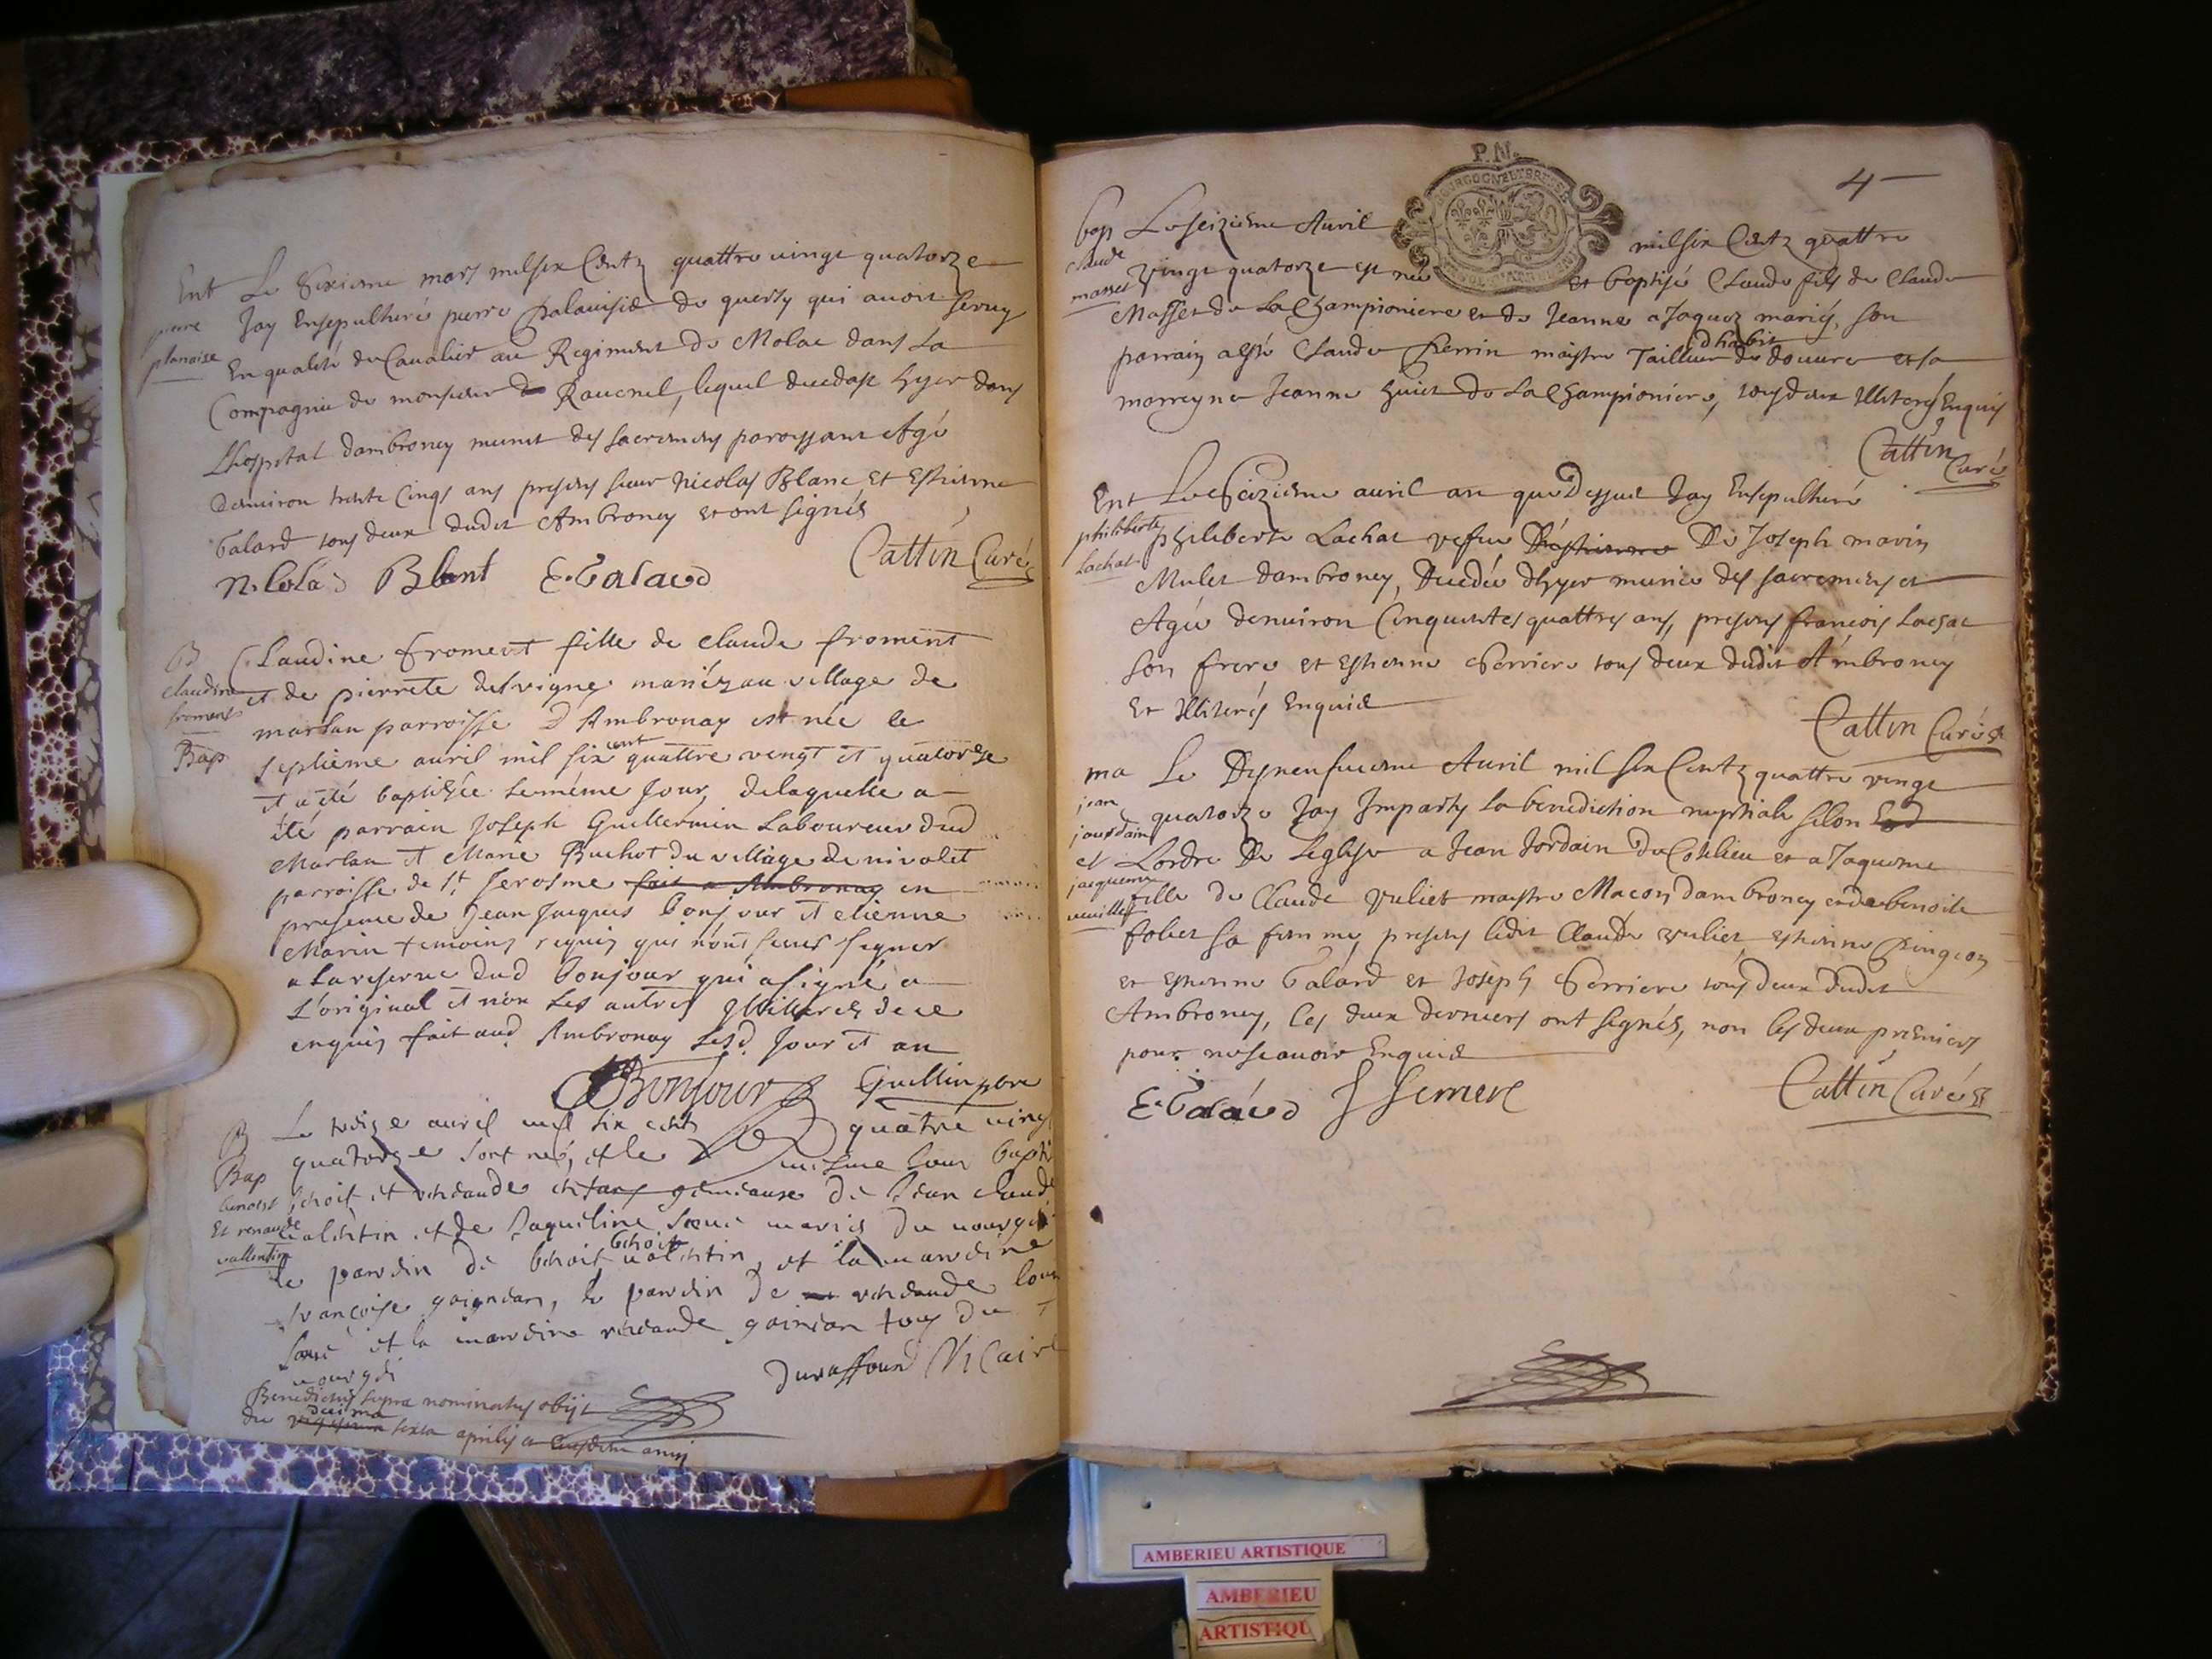 Ent
pierre
planaise
Le sixieme mars mil six Centz quattre vingt quatorze
Jay Ensepulturé pierre palauisie de quersy qui auoit seruy
En qualité de Caualier au Regiment de Molac dans La
Compagnie de monsieur de Rauenel, lequel decedast hyer dans
Lhospital dambroney munit des sacremens paroissant Agé
denuiron trente Cinqs ans presens sieur Nicolas Blanc Et Estienne
Galard tous deux dudit Ambroney et ont signés
Cattin Curé
Nicolas Blant E. Galard
B
claudine
froment
Bap
Claudine froment fille de claude froment
et de pierrete delvigne mariéz au village de
marsan parroisse D'Ambronay est née le
septieme auril mil six cent quattre vengt et quatorze
et a été baptisée le même Jour, delaquelle a
été parrain Joseph Guillermin Laboureur dud
Marlan et Marie Buchot du village de nivolet
parroisse de St Jerosme fait a Ambronay en
presence de Jean Jacques bonjour et etienne
Marin temoins requis qui nont sceus signer
a La reserue dud bonjour qui a signé a
L'original et non Les autres Illiterés de ce
enquis fait aud Ambronay Lesd Jour et an
Bonjour Guillin pbre
B
Bap
benoist
Et renaude
vallentin
Le treize auril mil six cents quatre vingt
quatorze sont nés, et le mesme Jour bapti
benoit et renaude enfans gemeaux de Jean claude
valentin et de Jaqueline soeur mariés du
le parrin de benoit benoit valentin, et la marrine
francoise goignon, le parrin de renaude
et la marrine renaude goinion tous du
Durassour Vicaire
Benedictus supra nominatus obijt
die vigesima decima sexta aprilis a eiusdem anni
P.M.
BOURGOGNE ET BRESSE
4
bap
claude
masset
Le seizieme Auril mil six Centz quattre
vingt quatorze est né et baptisé Claude fils de Claude
Masset de La Championiere et de Jeanne a Jaquez mariés, son
parrain a esté Claude Perrin maistre Tailleur dhabit de douure et sa
marreyne Jeanne huiet de La Championiere, tous deux Illiterés Enquis
Cattin Curé
Ent
philiberte
Lachat
Le seizieme auril an que Dessus Jay Ensepulturé
philiberte Lachat vefue D'estienne De Joseph marin
Mulet dambroney, Decedée dhyer munie des sacremens et
Agée denuiron Cinquantes quattres ans, presens francois Lachat
son frere et Estienne Perriere tous deux dudit Ambroney
Et Illiterés Enquis
Cattin Curé
ma
jean
jourdain
et
jacqueme
veuillet
Le Dixneufuieme Auril mil six Centz quattre vingt
quatorze Jay Imparty La benediction nuptiale selon Lod
Lordre De Leglise a Jean Jordain du Colelieu et a Jaqueme
fille de Claude vuliet maistre Macon dambroney et de benoite
foliet sa femme, presens ledit Claude vuliet, Estienne Pingeon
et Estienne Galard et Joseph Perriere tous deux dudit
Ambroney, les deux derniers ont signés, non les deux premiers
pour ne scauoir Enquis
Cattin Curé
E. Galard J Perriere
AMBERIEU ARTISTIQUE
AMBERIEU
ARTISTIQU